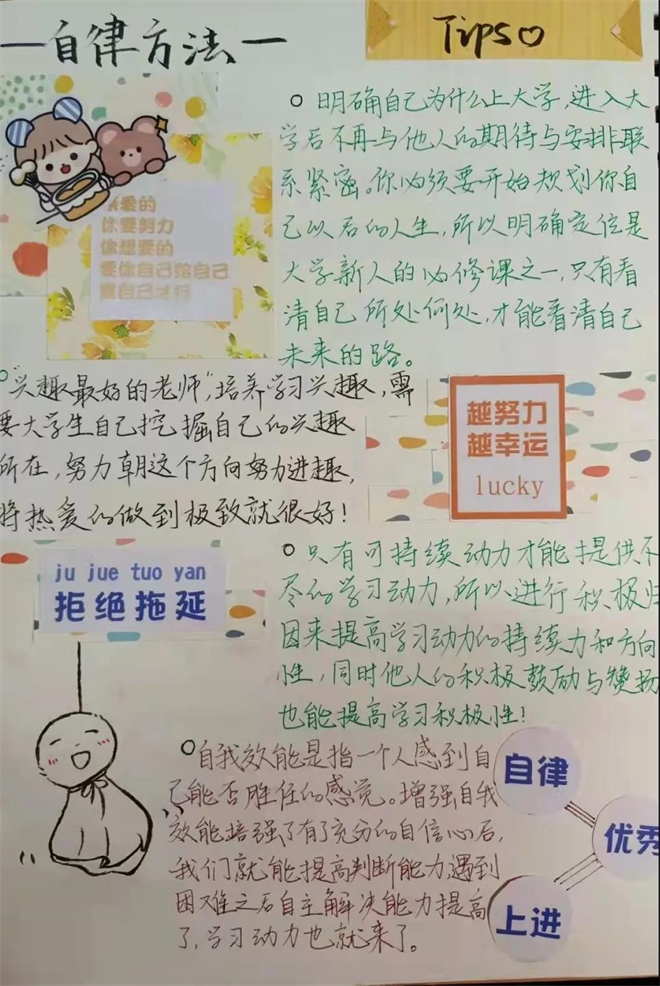 一自律方法一
Tips
明确自己为什么上大学,进入大
学后不再与他人的期待与安排联
系紧密。你必须要开始规划你自
己以后的人生,所以明确定位是
大学新人的必修课之一,只有看
清自己所处何处,才能看清自己
未来的路。
亲爱的
你要努力
你想要的
要你自己给自己
"兴趣最好的老师",培养学习兴趣,需
要大学生自己挖掘自己的兴趣
所在,努力朝这个方向努力进趣,
将热爱的做到极致就很好!
越努力
越幸运
lucky
ju jue tuo yan
拒绝拖延
只有可持续动力才能提供不
尽的学习动力,所以进行积极归
因来提高学习动力的持续力和方向
性,同时他人的积极鼓励与赞扬
也能提高学习积极性!
自我效能是指一个人感到自
己能否胜任的感觉。增强自我
效能培强了有了充分的自信心后,
我们就能提高判断能力遇到
困难之后自主解决能力提高
了,学习动力也就来了。
自律
优秀
上进